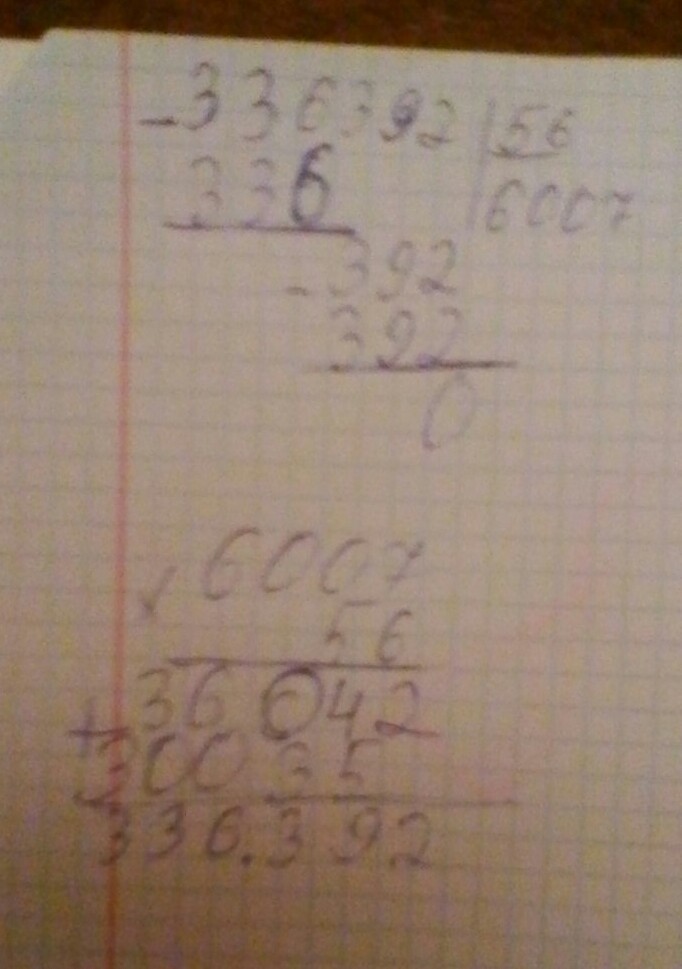 - 336392 | 56
336 | 6007
- 392
392
0
× 6007
56
+ 36042
30035
336.392